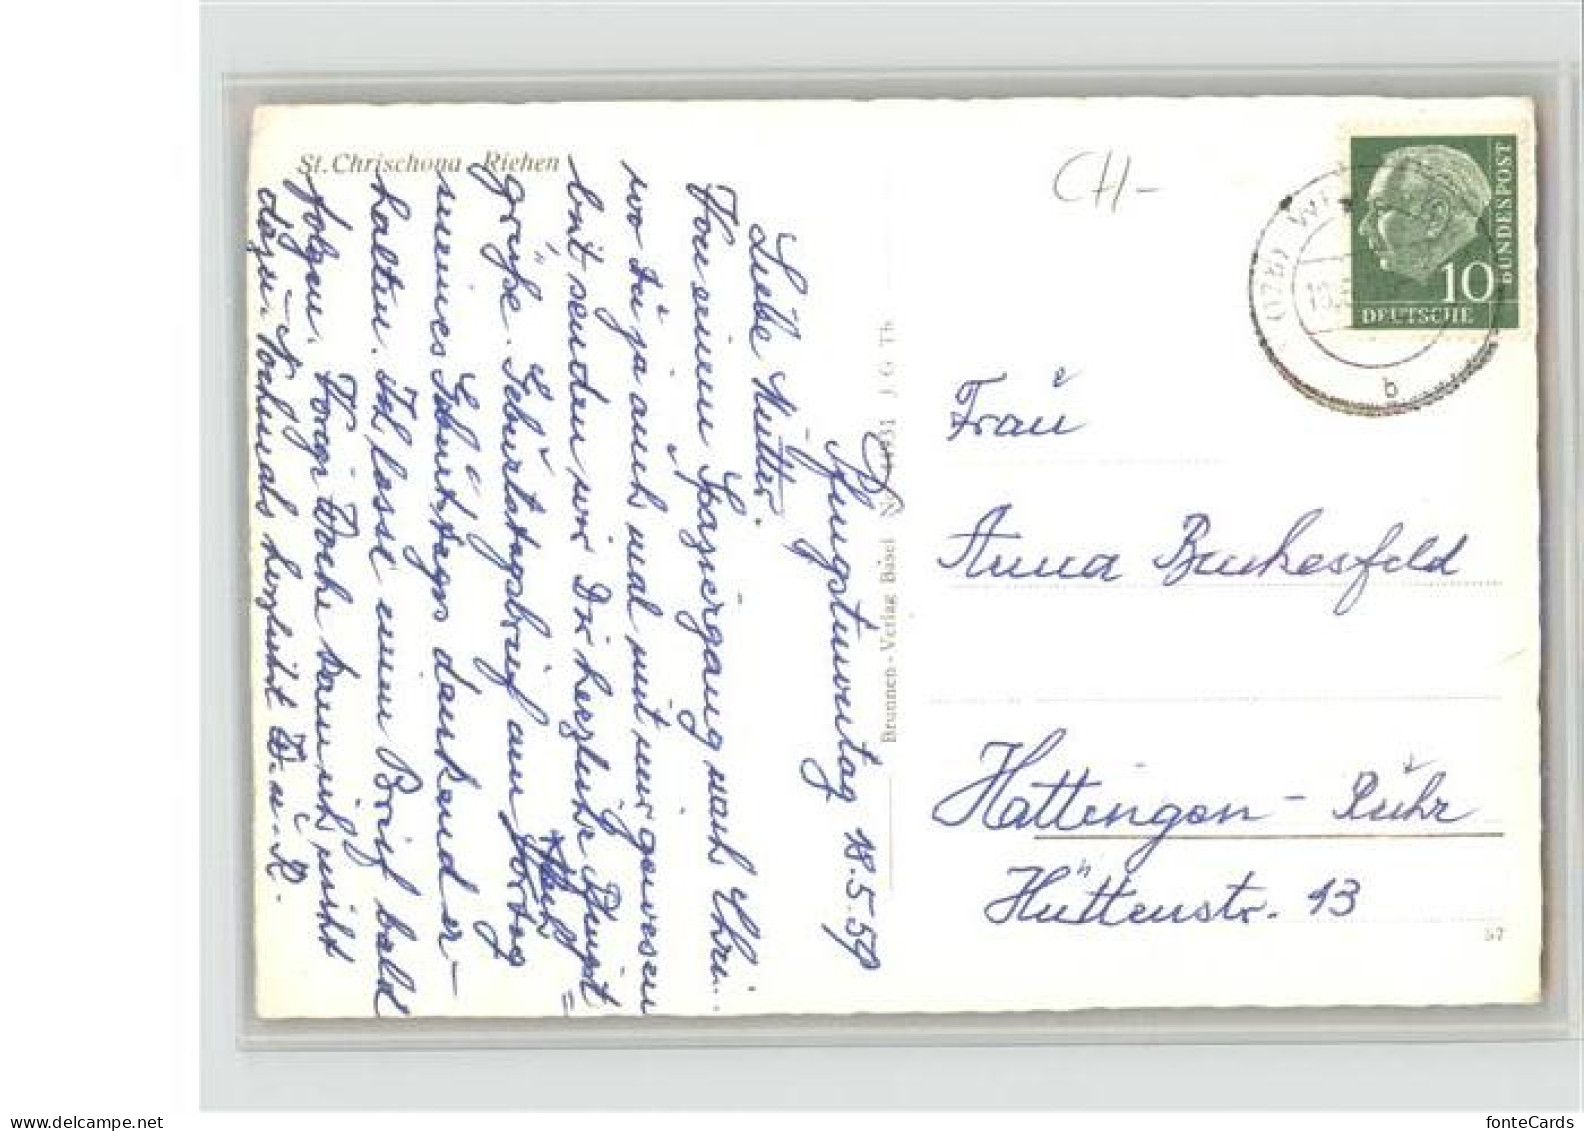 St. Chrischona - Riehen
CH-
Pfingstmontag 18.5.59
Liebe Mutter.
Von einem Spaziergang nach Chri...
wo Du ja auch mal mit mir gewesen
bist senden wir Dir herzliche Pfingst=
grüße. Geburtstagsbrief am Vortag
meines Geburtstages dankend er-
halten. Ich lasse einen Brief bald
folgen. Vorige Woche kam ich nicht
dazu. Nochmals herzlichst W. u. R.
Brunnen-Verlag Basel J. G. Th
BUNDESPOST
10
DEUTSCHE
(17b) W
b
Frau
Anna Buchesfeld
Hattingen - Ruhr
Hüttenstr. 13
57
fonteCards